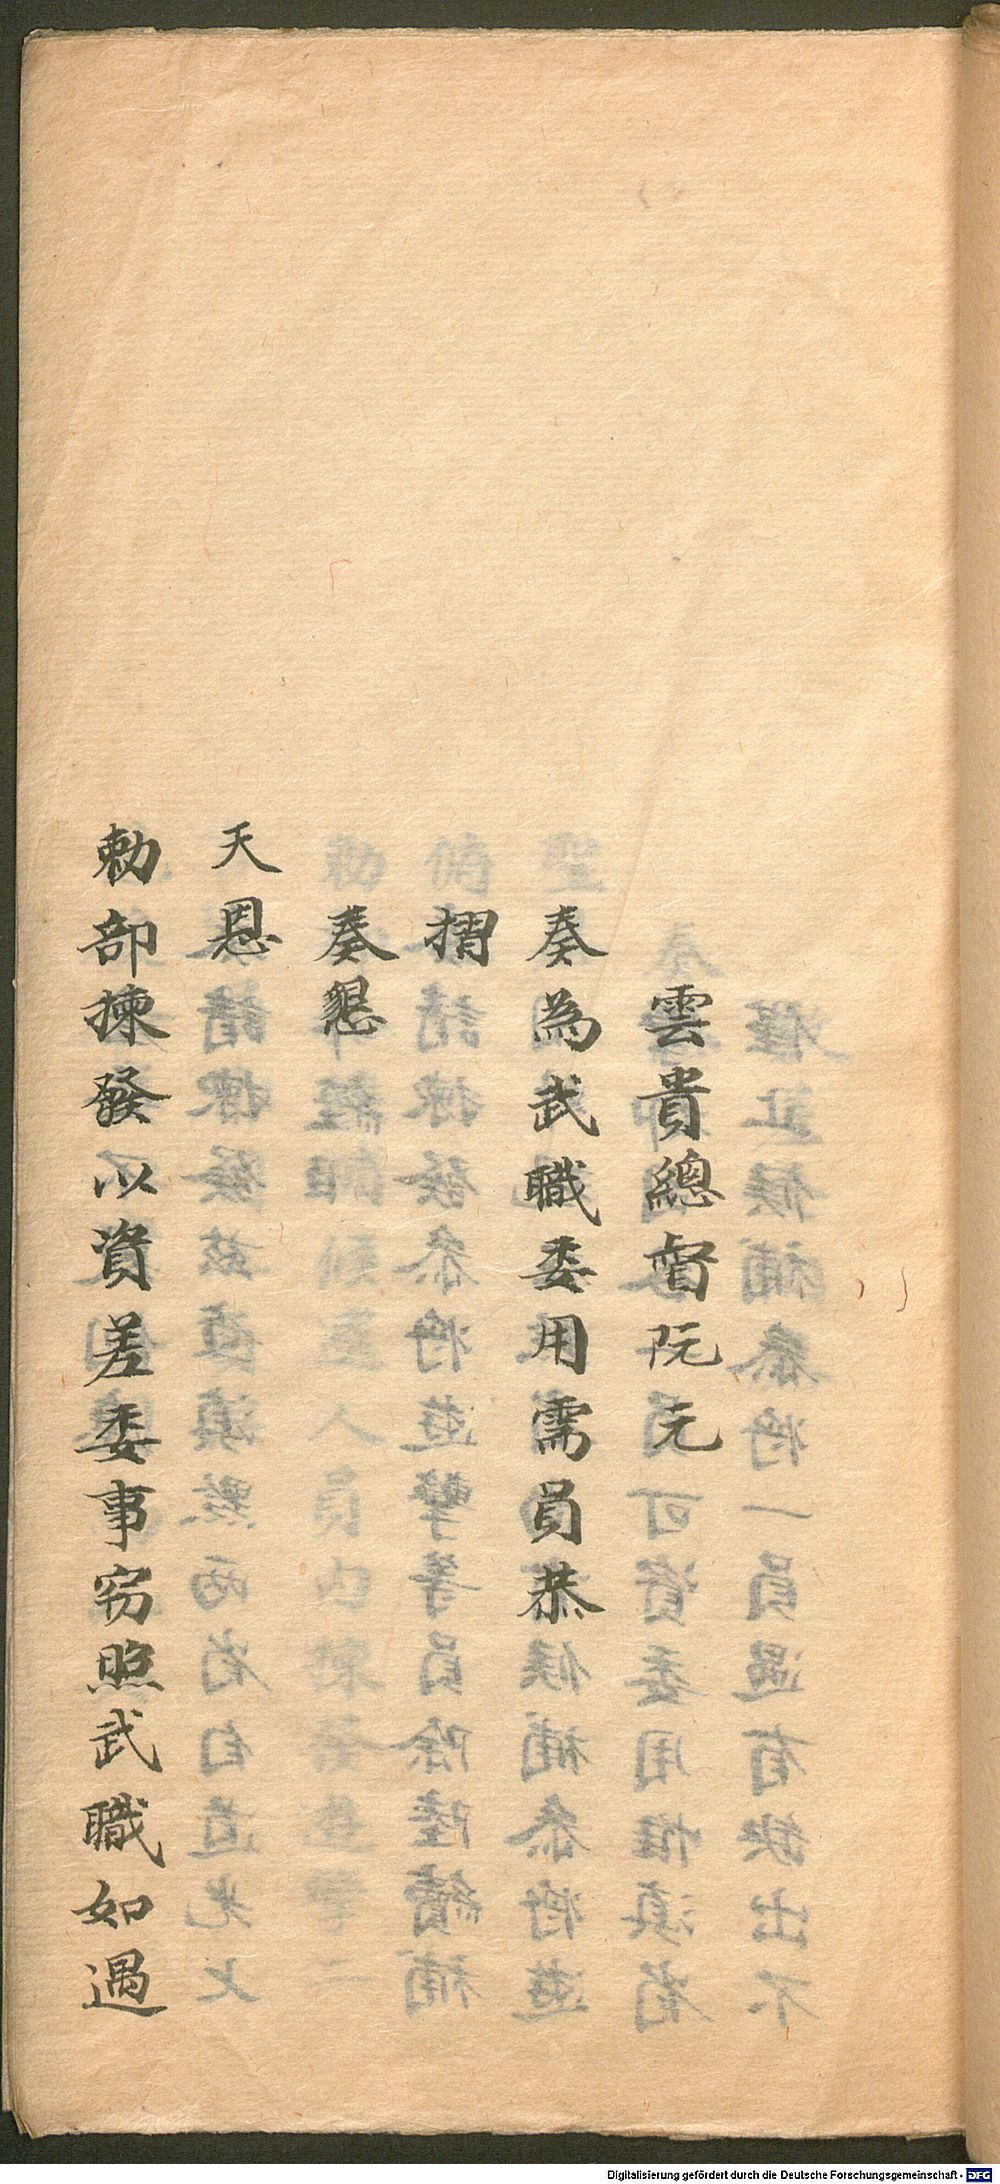 雲貴總督阮元
奏為武職委用需員恭
摺
奏懇
天恩
勅部揀發以資差委事窃照武職如遇
Digitalisierung gefördert durch die Deutsche Forschungsgemeinschaft - DFG